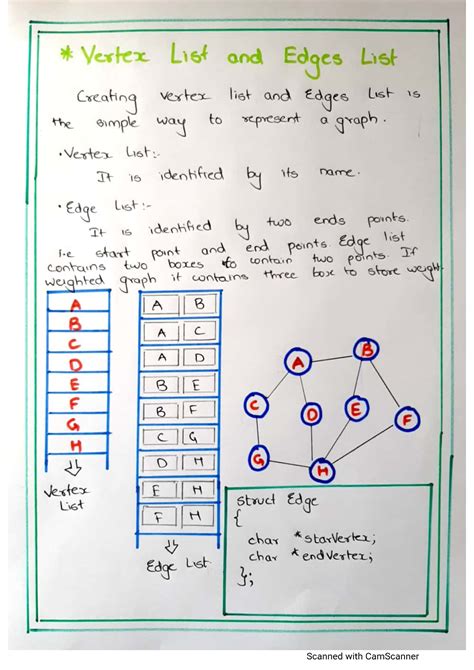 * Vertex List and Edges List
Creating vertex list and Edges List is
the simple way to represent a graph.
• Vertex List:-
It is identified by its name.
• Edge List :-
It is identified by two ends points.
i.e start point and end points. Edge list
contains two boxes to contain two points. If
weighted graph it contains three box to store weight.
A
B
C
D
E
F
G
H
Vertex
List
A B
A C
A D
B E
B F
C G
D H
E H
F H
Edge List
A
B
C
D
E
F
G
H
struct Edge
{
char *starVertex;
char *endVertex;
};
Scanned with CamScanner